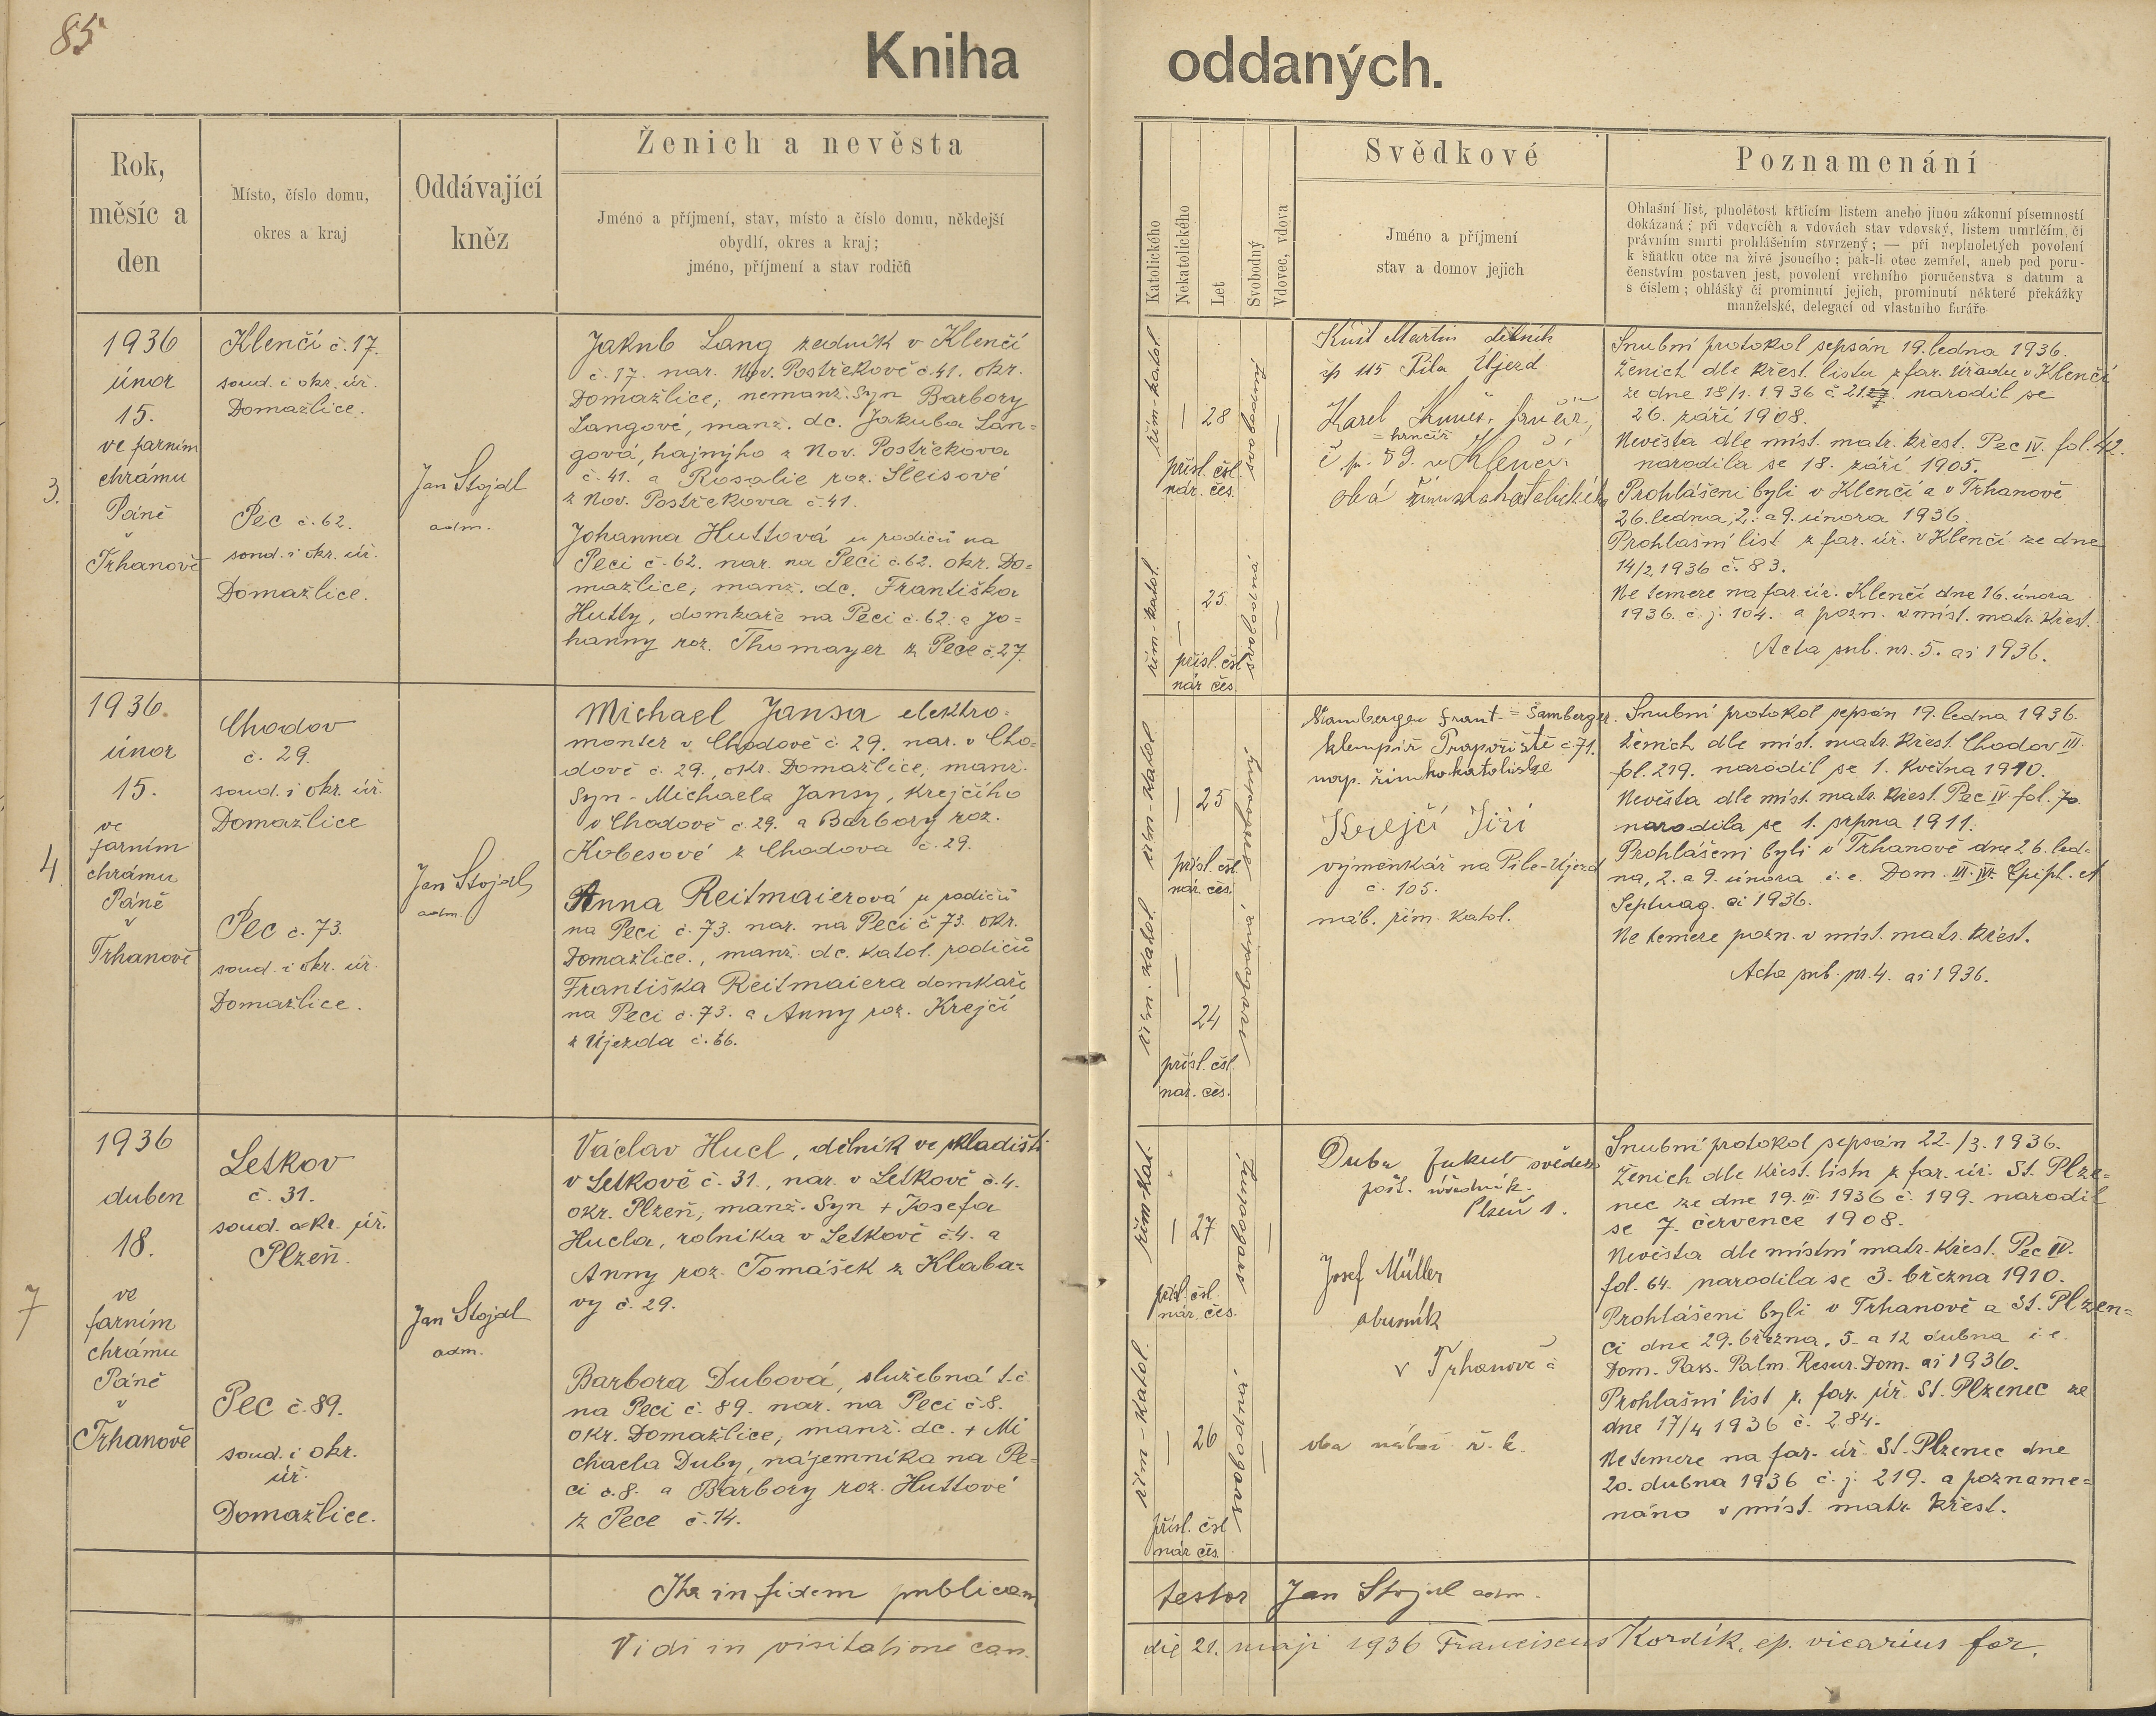 85
Kniha oddaných.
Rok,
měsíc a
den
Místo, číslo domu,
okres a kraj
Oddávající
kněz
Ženich a nevěsta
Jméno a příjmení, stav, místo a číslo domu, někdejší
obydlí, okres a kraj;
jméno, příjmení a stav rodičů
Katolického
Nekatolického
Let
Svobodný
Vdovec, vdova
Svědkové
Jméno a příjmení
stav a domov jejich
Poznamenání
Ohlašní list, plnoletost křticím listem anebo jinou zákonní písemností
dokázaná; při vdovcích a vdovách stav vdovský, listem umrlčím, či
právním smrti prohlášením stvrzený; — při neplnoletých povolení
k sňatku otce na živě jsoucího; pak-li otec zemřel, aneb pod poru-
čenstvím postaven jest, povolení vrchního poručenstva s datum a
s číslem; ohlášky či prominutí jejich, prominutí některé překážky
manželské, delegací od vlastního faráře
3.
1936
únor
15.
ve farním
chrámu
Páně
v
Trhanově
Klenčí č. 17.
soud. i okr. úř.
Domažlice.
Pec č. 62.
soud. i okr. úř.
Domažlice.
Jan Stojdl
adm.
Jakub Lang zedník v Klenčí
č. 17. nar. Nov. Postřekově č. 41. okr.
Domažlice; nemanž. Syn Barbory
Langové, manž. dc. Jakuba Lan=
gová, hajnýho z Nov. Postřekova
č. 41. a Rosalie roz. Šleisové
z Nov. Postřekova č. 41.
Johanna Huttová u rodičů na
Peci č. 62. nar. na Peci č. 62. okr. Do=
mažlice; manž. dc. Františka
Hutty, domkaře na Peci č. 62. a Jo=
hanny roz. Thomayer z Pece č. 27.
řím-katol.
28
svobodný
přísl. čsl.
nár. čes.
řím-katol.
25
svobodná
přísl. čsl.
nár. čes.
Martin dělník
čp 115 Pila Újezd
Karel
= hrnčíř
č. p. 59. v Klenčí.
oba
Snubní protokol sepsán 19. ledna 1936.
Ženich dle křest. listu z far. úřadu v Klenčí
ze dne 18/1. 1936 č. 21. narodil se
26. září 1908.
Nevěsta dle míst. matr. křest. Pec IV. fol. 42.
narodila se 18. září 1905.
Prohlášeni byli v Klenčí a v Trhanově
26. ledna, 2. a 9. února 1936
Prohlašní list z far. úř. v Klenčí ze dne
14/2 1936 č. 83.
Ne temere na far. úř. Klenčí dne 16. února
1936. č. j. 104. a pozn. v míst. matr. křest.
Acta pub. nr. 5. ai 1936.
4.
1936.
únor
15.
ve
farním
chrámu
Páně
v
Trhanově
Chodov
č. 29.
soud. i okr. úř.
Domažlice
Pec č. 73.
soud. i okr. úř.
Domažlice.
Jan Stojdl
adm.
Michael Jansa elektro-
monter v Chodově č. 29. nar. v Cho=
dově č. 29., okr. Domažlice, manž.
Syn - Michaela Jansy, krejčího
v Chodově č. 29. a Barbory roz.
Kobesové z Chodova č. 29.
Anna Reitmaierová u rodičů
na Peci č. 73. nar. na Peci č. 73. okr.
Domažlice., manž. dc. katol. rodičů
Františka Reitmaiera domkaře
na Peci č. 73. a Anny roz. Krejčí
z Újezda č. 66.
řím-katol.
25
svobodný
přísl. čsl.
nár. čes.
řím. katol.
24
svobodná
přísl. čsl.
nár. čes.
Šamberger Frant. = Šamberger.
klempíř Prapořiště č. 71.
Krejčí Jiří
výmenkář na Pile-Újezd
č. 105.
náb. řím. katol.
Snubní protokol sepsán 19. ledna 1936.
Ženich dle míst. matr. křest. Chodov III.
fol. 219. narodil se 1. Května 1910.
Nevěsta dle míst. matr. křest. Pec IV. fol. 70.
narodila se 1. srpna 1911.
Prohlášeni byli v Trhanově dne 26. led=
na, 2. a 9. února i. e. Dom. III. IV. Epiph. et
Septuag. ai 1936.
Ne temere pozn. v míst. matr. křest.
Acta pub. nr. 4. ai 1936.
7
1936
duben
18.
ve
farním
chrámu
Páně
v
Trhanově
Letkov
č. 31.
soud. okr. úř.
Plzeň.
Pec č. 89.
soud. i okr.
úř.
Domažlice.
Jan Stojdl
adm.
Václav Hucl, dělník ve skladišti
v Letkově č. 31., nar. v Letkově č. 4.
okr. Plzeň, manž. Syn + Josefa
Hucla, rolníka v Letkově č. 4. a
Anny roz. Tomášek z Klaba=
vy č. 29.
Barbora Dubová, služebná t. č.
na Peci č. 89. nar. na Peci č. 8.
okr. Domažlice, manž. dc. + Mi
chaela Duby, nájemníka na Pe=
ci č. 8. a Barbory roz. Huttové
z Pece č. 14.
řím-kat.
27
svobodný
přísl. čsl.
nár. čes.
řím-katol.
26
svobodná
přísl. čsl
nár. čes.
Duba Jakub svědek
pošt. úředník.
Plzeň 1.
Josef Müller
v Trhanově č
oba nábož. ř. k.
Snubní protokol sepsán 22./3. 1936.
Ženich dle křest. listu z far. úř. St. Plze=
nec ze dne 19. III. 1936 č. 199. narodil
se 7. července 1908.
Nevěsta dle místní matr. křest. Pec IV.
fol. 64. narodila se 3. března 1910.
Prohlášeni byli v Trhanově a St. Plzen=
ci dne 29. března, 5. a 12 dubna i. e.
Dom. Pass. Palm. Resur. Dom. ai 1936.
Prohlašní list z far. úř. St. Plzenec ze
dne 17/4 1936 č. 284.
Ne temere na far. úř. St. Plzenec dne
20. dubna 1936 č. j. 219. a pozname=
náno v míst. matr. křest.
Ita in fidem publicam testor Jan Stojdl adm.
Vidi in visitatione can. die 21. maji 1936 Franciscus Kordík, ep. vicarius for.